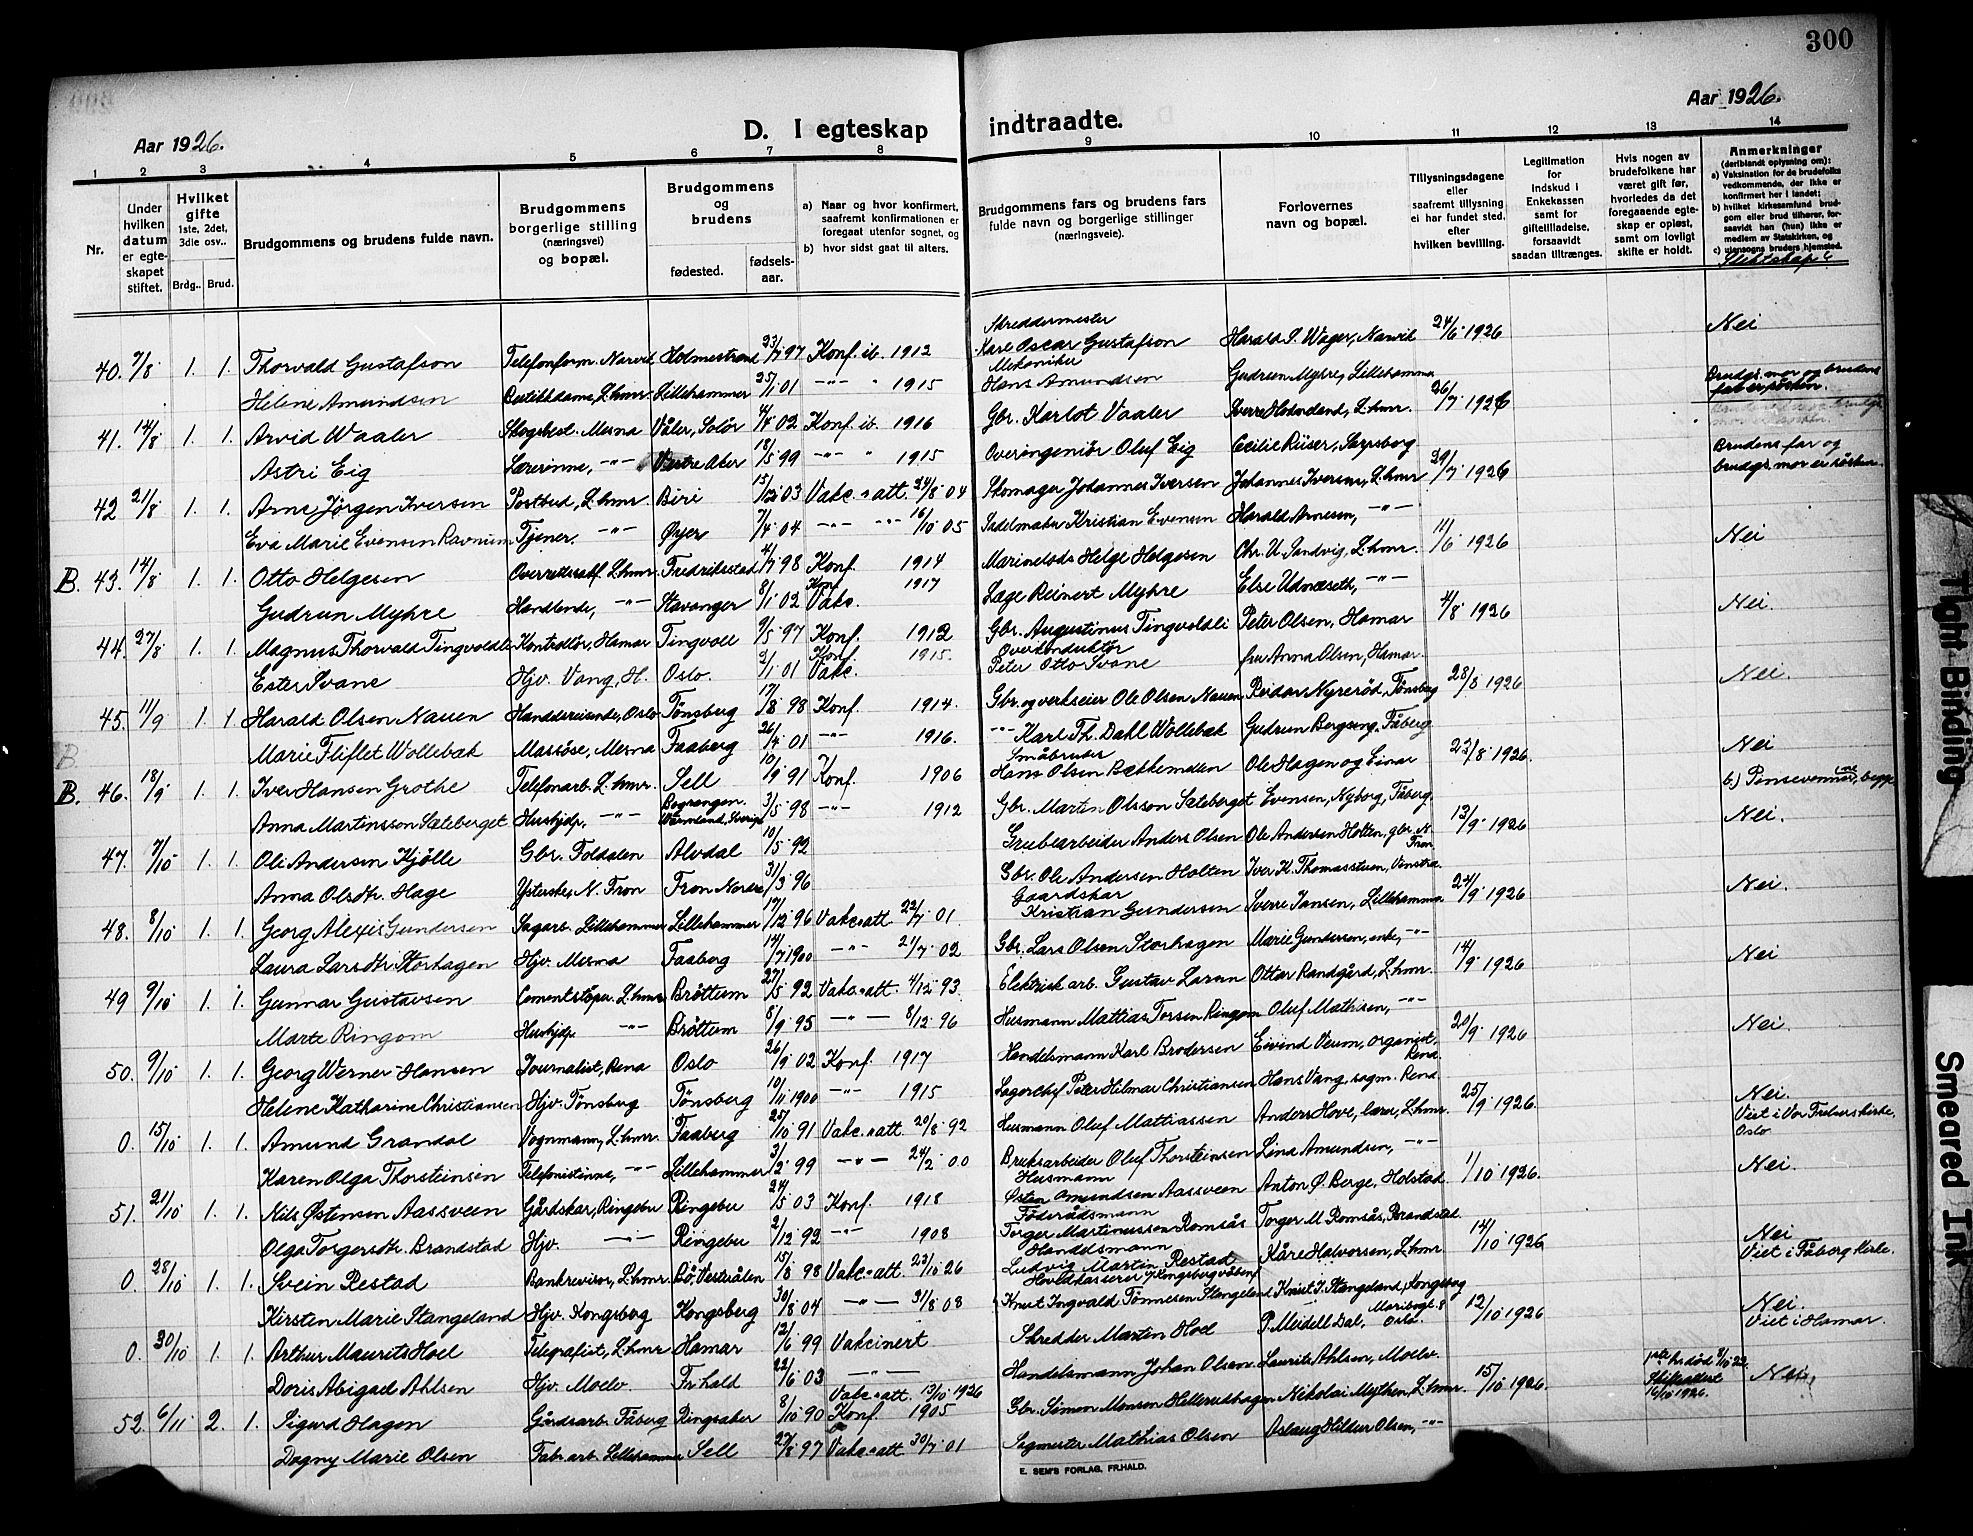 300
Aar 1926.
Aar 1926.
D. I egteskap indtraadte.
1 2 3 4 5 6 7 8 9 10 11 12 13 14
Nr.
Under hvilken datum er egteskapet stiftet.
Hvilket gifte 1ste, 2det, 3die osv..
Brdg.. Brud.
Brudgommens og brudens fulde navn.
Brudgommens borgerlige stilling (næringsvei) og bopæl.
Brudgommens og brudens
fødested. fødsels-aar.
a) Naar og hvor konfirmert, saafremt konfirmationen er foregaat utenfor sognet, og
b) hvor sidst gaat til alters.
Brudgommens fars og brudens fars fulde navn og borgerlige stillinger (næringsveie).
Forlovernes navn og bopæl.
Tillysningsdagene eller saafremt tillysning ei har fundet sted. efter hvilken bevilling.
Legitimation for Indskud i Enkekassen samt for giftetilladelse, forsaavidt saadan tiltrænges.
Hvis nogen av brudefolkene har været gift før, hvorledes da det foregaaende egteskap er opløst, samt om lovligt skifte er holdt.
Anmerkninger (deriblandt oplysning om):
a) Vaksination for de brudefolks vedkommende, der ikke er konfirmert her i landet;
b) hvilket kirkesamfund brudgom eller brud tilhører, forsaavidt han (hun) ikke er medlem av Statskirken, og
c) utensogns bruders hjemsted.
Slektskap?
40. 7/8 1. 1. Thorvald Gustafson Telefonform. Narvik Holmestrand 23/7 97 Konf. ib. 1912 Skreddermester Karl Oscar Gustafson Harald S. Wager, Narvik 24/6 1926 Nei
Helene Amundsen Butikkdame, L.hmr. Lillehammer 25/1 01 -"- " 1915 Mekaniker Hans Amundsen Gudrun Myhre, Lillehammer
41. 14/8 1. 1. Arvid Waaler Skogsbest. Mesna Våler, Solør 4/4 02 Konf. ib. 1916 Gbr. Karlot Vaaler L.hmr. 26/7 1926 Brudgs. mor og brudens far er søsken.
Astri Eig Lærerinne, -"- Vestre Aker 18/5 99 -"- " 1915 Overingeniør Oluf Eig Cecilie Riiser, Sarpsborg Brudens far og brudgs. mor er søsken.
42 21/8 1. 1. Arne Jørgen Iversen Postbud, L.hmr. Biri 15/12 03 Vakc. att. 24/8 04 Skomager Johannes Iversen Johannes Iversen, L.hmr 29/7 1926
Eva Marie Evensen Ravnum Tjener. -"- Øyer 7/4 04 -"- -"- 16/10 05 Sadelmaker Kristian Evensen Harald Arnesen, -"-
B. 43. 14/8 1. 1. Otto Helgesen Overrettssakf. L.hmr. Fredriksstad 4/7 98 Konf. 1914 Marinelods Helge Helgesen Chr. U. Sandvig, L.hmr. 11/6 1926 Nei
Gudrun Myhre Handlende, -"- Stavanger 8/1 02 Konf. Vakc. 1917 Lage Reinert Myhre Else Udnæseth, -"-
44. 27/8 1. 1. Magnus Thorvald Tingvoldli Kontrollør, Hamar Tingvoll 9/5 97 Konf. 1912 Gbr. Augustinus Tingvoldli Peter Olsen, Hamar 4/8 1926 Nei.
Ester Svane Hjv. Vang, H. Oslo. 2/1 01 Konf. Vakc. 1915. Overkonduktør Peter Otto Svane fru Anna Olsen, Hamar.
45. 11/9 1. 1. Harald Olsen Nauen Handdereiende, Oslo Tönsberg 17/8 98 Konf. 1914. Gbr. og verkseier Ole Olsen Nauen Reidar Nyrerød, Tönsberg 28/8 1926 Nei.
B. Marie Fliflet Wollebæk Massöse, Mesna Faaberg 26/4 01 -"- 1916. -"- Karl Th. Dahl Wollebæk Gudrun Bergseng, Fåberg
B. 46. 18/9 1. 1. Iver Hansen Grothe Telefonarb. L.hmr. Sell 10/9 91 Konf. 1906 Småbruker Hans Olsen Bækkemellen Ole Hagen og Einar 23/8 1926. Nei
b) Pinsevennerne, begge
Anna Martinsson Sæteberget Hushjelp, -"- Bograngen. Wärmland, Sverige 3/5 98 -"- 1912 Gbr. Martin Olsson Sæteberget Evensen, Nyborg, Fåberg.
47. 7/10 1. 1. Ole Andersen Kjölle Gbr. Foldalen Alvdal 10/5 92 Grubearbeider Anders Olsen Ole Andersen Holten, gbr. N. Fron 13/9 1926 Nei.
Anna Olsdtr. Hage Ysterske, N. Fron Fron Nordre 31/3 96 Gbr. Ole Andersen Holten Iver K. Thomasstuen, Vinstra.
48. 8/10 1. 1. Georg Alexis Gundersen Sagarb. Lillehammer Lillehammer 17/12 96 Vakc. att 22/7 01. Gaardskar Kristian Gundersen Sverre Jansen, Lillehammer 24/9 1926 Nei.
Laura Larsdtr. Storhagen Hjv. Mesna Faaberg 14/7 1900 -"- 21/7 02 Gbr. Lars Olsen Storhagen Marie Gundersen, enke, -"-
49 9/10 1. 1. Gunnar Gustavsen Cementstøper. L.hmr Brøttum 27/5 92 Vakc. att. 4/12 93. Elektrisk arb. Gustav Larsen Ottar Randgård, L.hmr. 14/9 1926 Nei.
Marte Ringom Hushjelp -"- Brøttum 8/9 95 -"- 8/12 96 Husmann Mattias Torsen Ringom Oluf Mathisen, -"-
50. 9/10 1. 1. Georg Werner Hansen Journalist, Rena Oslo 26/9 02 Konf. 1917 Handelsmann Karl Brodersen Eivind Veum, organist, Rena. 20/9 1926 Nei.
Helene Katharine Christiansen Hjv. Tönsberg Tönsberg 10/11 1900 -"- 1915 Lagerchef Peter Hilmar Christiansen Hans Vang, sagm. Rena.
0. 15/10 1. 1. Amund Grandal Vognmann, L.hmr. Faaberg 25/10 91 Vakc. att 20/8 92 Husmann Oluf Mattiassen Anders Hove, lærer, L.hmr. 25/9 1926. Nei.
Viet i Vor Frelsers kirke Oslo
Karen Olga Thorsteinsen Telefonistinne, -"- Lillehammer 3/12 99 -"- 24/2 00 Bruksarbeider Oluf Thorsteinsen Lina Amundsen, -"-
51. 21/10 1. 1. Nils Østensen Aassveen Gårdskar, Ringebu Ringebu 24/5 03 Konf. 1918 Husmann Østen Amundsen Aassveen Anton Ø. Berge, Holstad 1/10 1926. Nei.
Olga Torgersdtr. Brandstad Hjv. -"- Ringebu 2/12 92 -"- 1908 Föderådsmann Torger Martinussen Romsås Torger M. Romsås, Brandstad
0. 28/10 1. 1. Svein Restad Bankrevisor, L.hmr. Bö, Vesterålen 15/8 98 Vakc. att 22/10 26 Handelsmann Ludvig Martin Restad Kåre Halvorsen, L.hmr 14/10 1926 Nei
Viet i Fåberg kirke.
Kirsten Marie Stangeland Hjv. Kongsberg Kongsberg 30/8 04 -"- 31/8 08 Hovedkasserer v/ Kongsberg våbenf. Knut Ingvald Tönnesen Stangeland Knut T. Stangeland, Kongsbeg
0. 30/10 1. 1. Arthur Maurits Hoel Telegrafist, L.hmr Hamar 12/6 99 Vakcinert Skredder Martin Hoel P. Meidell Dal, Maribogt. 8 Oslo. 12/10 1926 Nei.
Viet i Hamar.
Doris Abigael Ahlsen Hjv. Moelv. Fr.hald 22/6 03 -"- Handelsmann Johan Olsen Laurits Ahlsen, Moelv.
52. 6/11 2. 1. Sigurd Hagen Gårdsarb. Fåberg Ringsaker 8/10 90 Vakc. att. 13/10 1926 Konf. 1905 Gbr. Simen Monsen Hellerudhagen Nikolai Mythen, L.hmr 15/10 1926. 1ste h. död 9/10 22. Skifteattest 16/10 1926. Nei,
Dagny Marie Olsen Fabr. arb. Lillehammer Sell 27/8 97 Vakc. att 30/7 01 Sagmester Mathias Olsen Aslaug Hildur Olsen, -"-
E. SEM'S FORLAG, FR.HALD.
Tight Binding
Smeared Ink